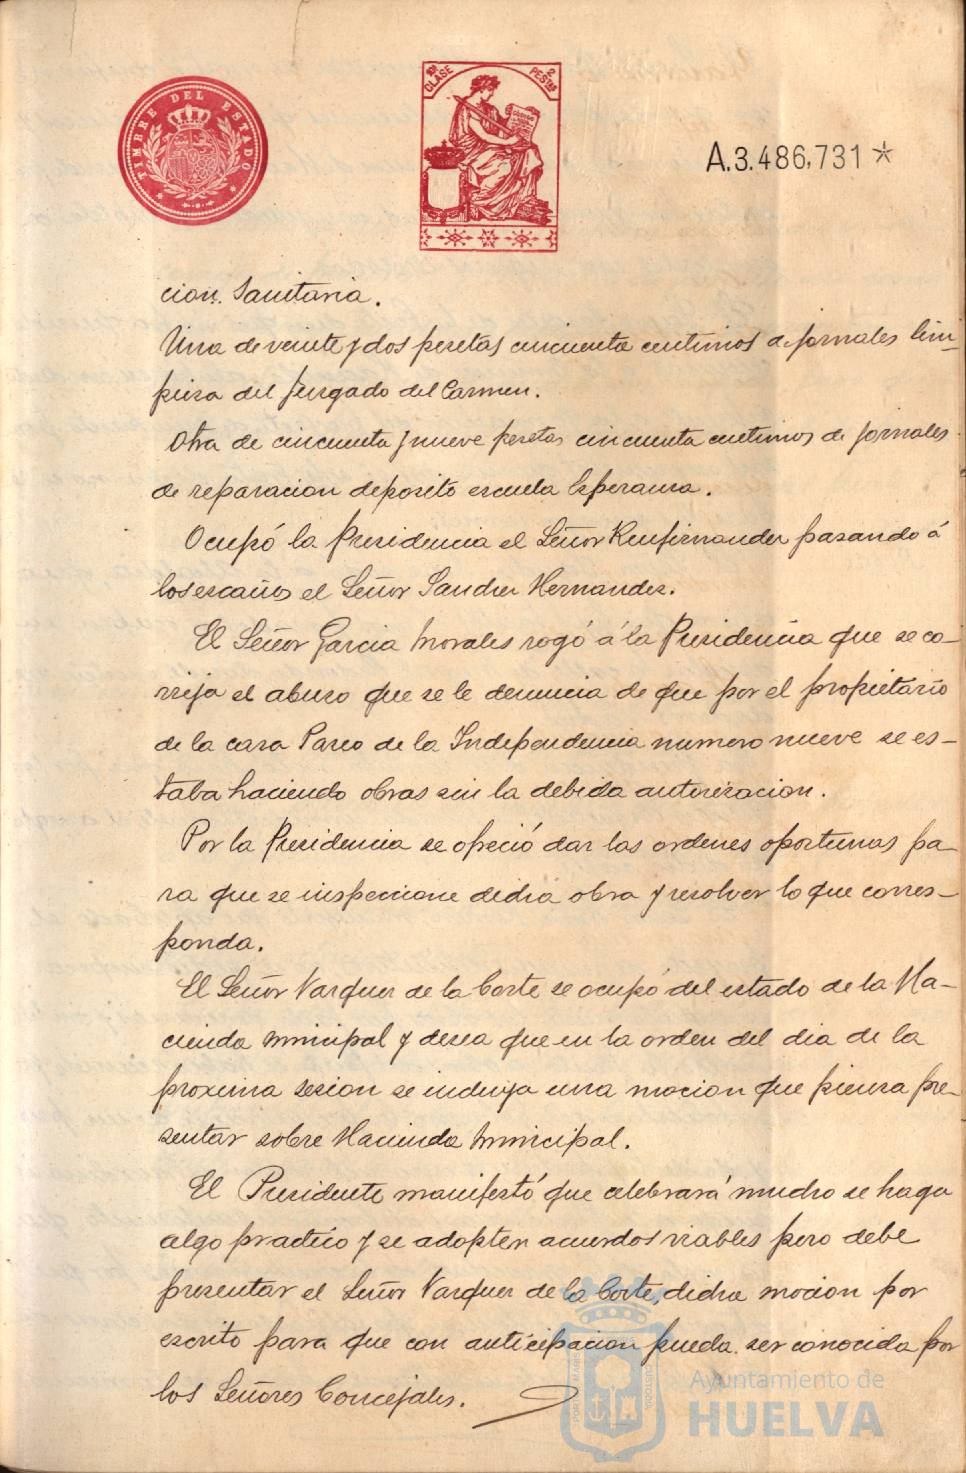 TIMBRE DEL ESTADO
10ª CLASE 2 PESTAS
A.3.486,731 *
cion. Sanitaria.
Una de veinte y dos pesetas cincuenta centimos de jornales lim-
pieza del Juzgado del Carmen.
Otra de cincuenta y nueve pesetas cincuenta centimos de jornales
de reparacion deposito escuela Esperanza.
Ocupó la Presidencia el Señor pasando á
los escaños el Señor Sanchez Hernandez.
El Señor Garcia Morales rogó á la Presidencia que se co-
rrija el abuso que se le denuncia de que por el propietario
de la casa Paseo de la Independencia numero nueve se es-
taba haciendo obras sin la debida autorizacion.
Por la Presidencia se ofreció dar las ordenes oportunas pa-
ra que se inspeccione dicha obra y resolver lo que corres-
ponda.
El Señor Vazquez de la Corte se ocupó del estado de la Ha-
cienda municipal y desea que en la orden del dia de la
proxima sesion se incluya una mocion que piensa pre-
sentar sobre Hacienda municipal.
El Presidente manifestó que celebrará mucho se haga
algo practico y se adopten acuerdos viables pero debe
presentar el Señor Vazquez de la Corte, dicha mocion por
escrito para que con anticipacion pueda ser conocida por
los Señores Concejales.
Ayuntamiento de
HUELVA